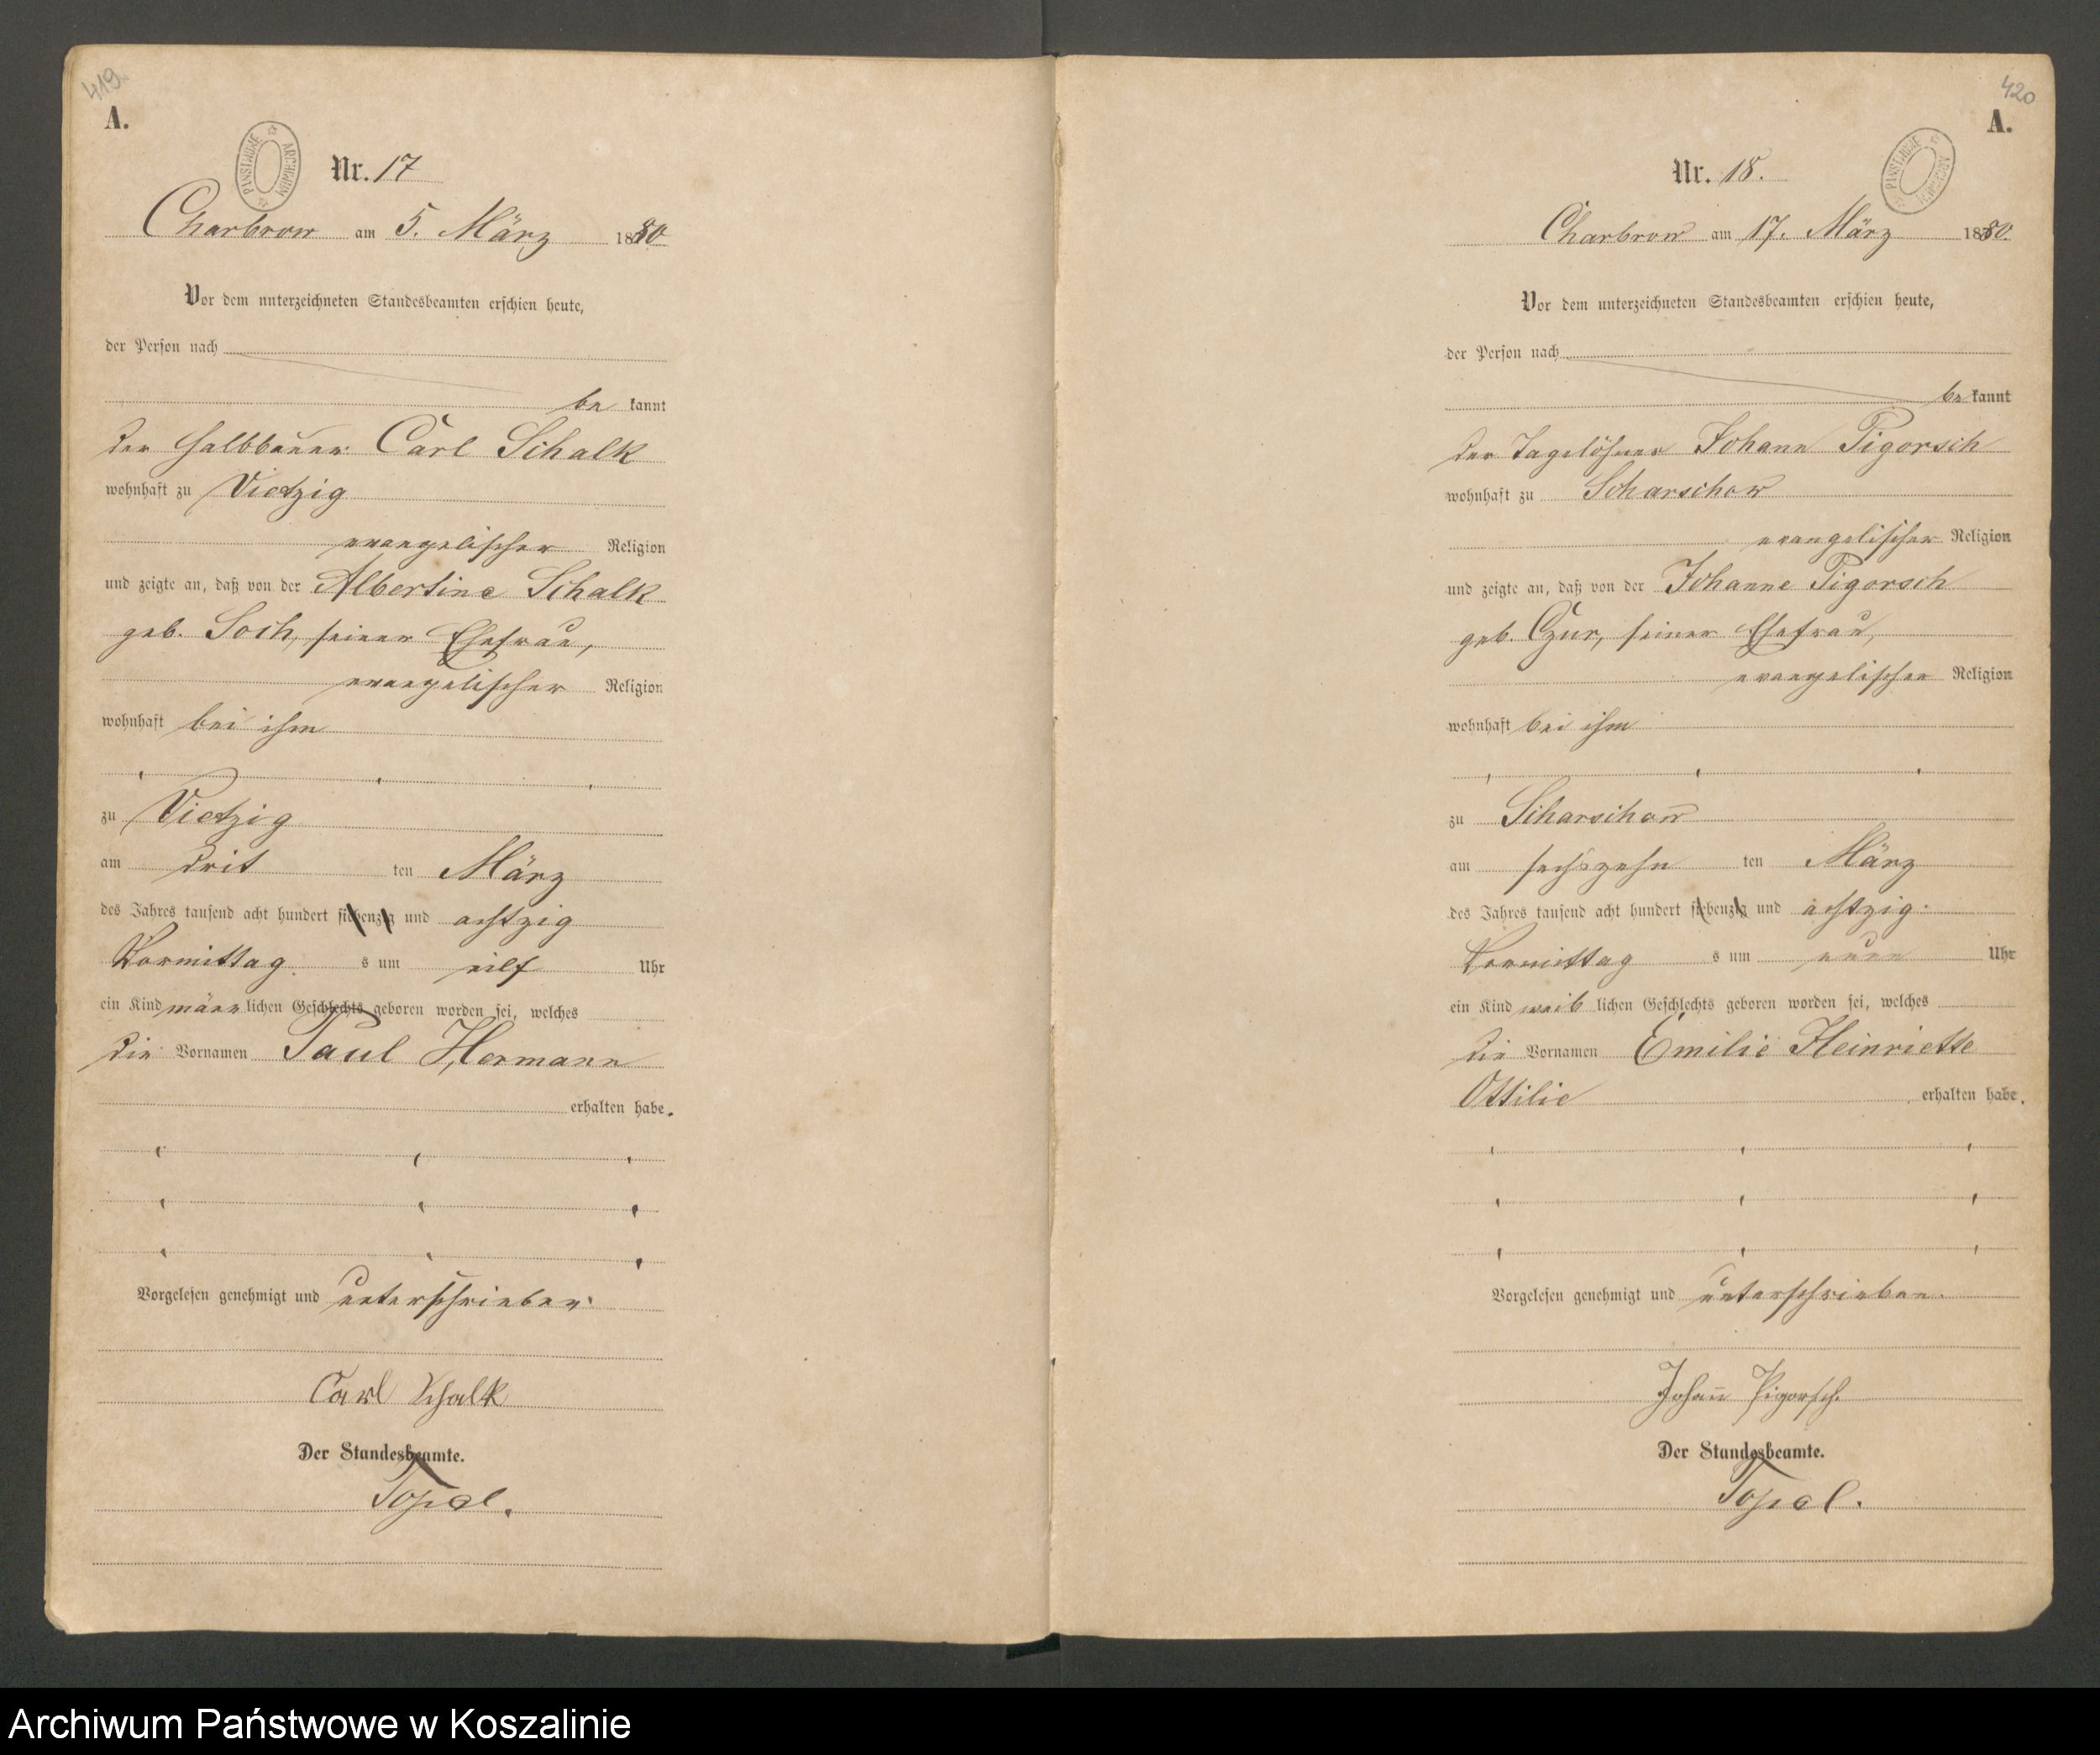 419
A.
ARCHIWUM PAŃSTWOWE
Nr. 17
Charbrow am 5. März 1880
Vor dem unterzeichneten Standesbeamten erschien heute,
der Person nach
be kannt
der Halbbauer Carl Schalk
wohnhaft zu Vietzig
evangelischer Religion
und zeigte an, daß von der Albertine Schalk
geb. Soch, seiner Ehefrau,
evangelischer Religion
wohnhaft bei ihm
zu Vietzig
am drit ten März
des Jahres tausend acht hundert siebenzig und achtzig
Vormittag s um eilf Uhr
ein Kind männlichen Geschlechts geboren worden sei, welches
die Vornamen Paul Hermann
erhalten habe.
Vorgelesen genehmigt und unterschrieben.
Carl Schalk
Der Standesbeamte.
Topel.
420
A.
ARCHIWUM PAŃSTWOWE
Nr. 18.
Charbrow am 17. März 1880.
Vor dem unterzeichneten Standesbeamten erschien heute,
der Person nach
be kannt
der Tagelöhner Johann Pigorsch
wohnhaft zu Scharschow
evangelischer Religion
und zeigte an, daß von der Johanne Pigorsch
geb. Czur, seiner Ehefrau,
evangelischer Religion
wohnhaft bei ihm
zu Scharschow
am sechszehn ten März
des Jahres tausend acht hundert siebenzig und achtzig.
Vormittag s um neun Uhr
ein Kind weib lichen Geschlechts geboren worden sei, welches
die Vornamen Emilie Heinriette
Ottilie erhalten habe.
Vorgelesen genehmigt und unterschrieben.
Johann Pigorsch.
Der Standesbeamte.
Topel.
Archiwum Państwowe w Koszalinie